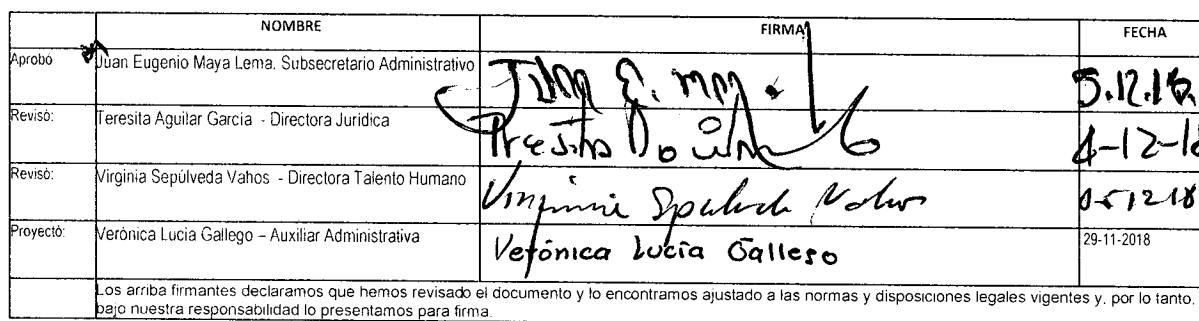 NOMBRE FIRMA FECHA
Aprobó Juan Eugenio Maya Lema. Subsecretario Administrativo 5.12.18
Revisó: Teresita Aguilar Garcia - Directora Jurídica 4-12-18
Revisó: Virginia Sepúlveda Vahos - Directora Talento Humano Virginia Sepulveda Vahos 05 12 18
Proyectó: Verónica Lucia Gallego – Auxiliar Administrativa Verónica Lucía Gallego 29-11-2018
Los arriba firmantes declaramos que hemos revisado el documento y lo encontramos ajustado a las normas y disposiciones legales vigentes y, por lo tanto,
bajo nuestra responsabilidad lo presentamos para firma.